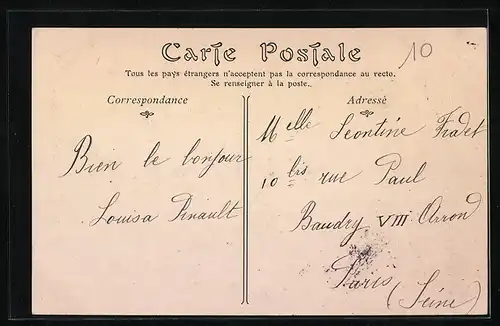 Carte Postale
10
Tous les pays étrangers n'acceptent pas la correspondance au recto.
Se renseigner à la poste.
Correspondance
Adresse
Bien le bonjour
Louisa Pinault
Melle Leontine Fradet
10 bis rue Paul
Baudry VIII Arrond
Paris
(Seine)